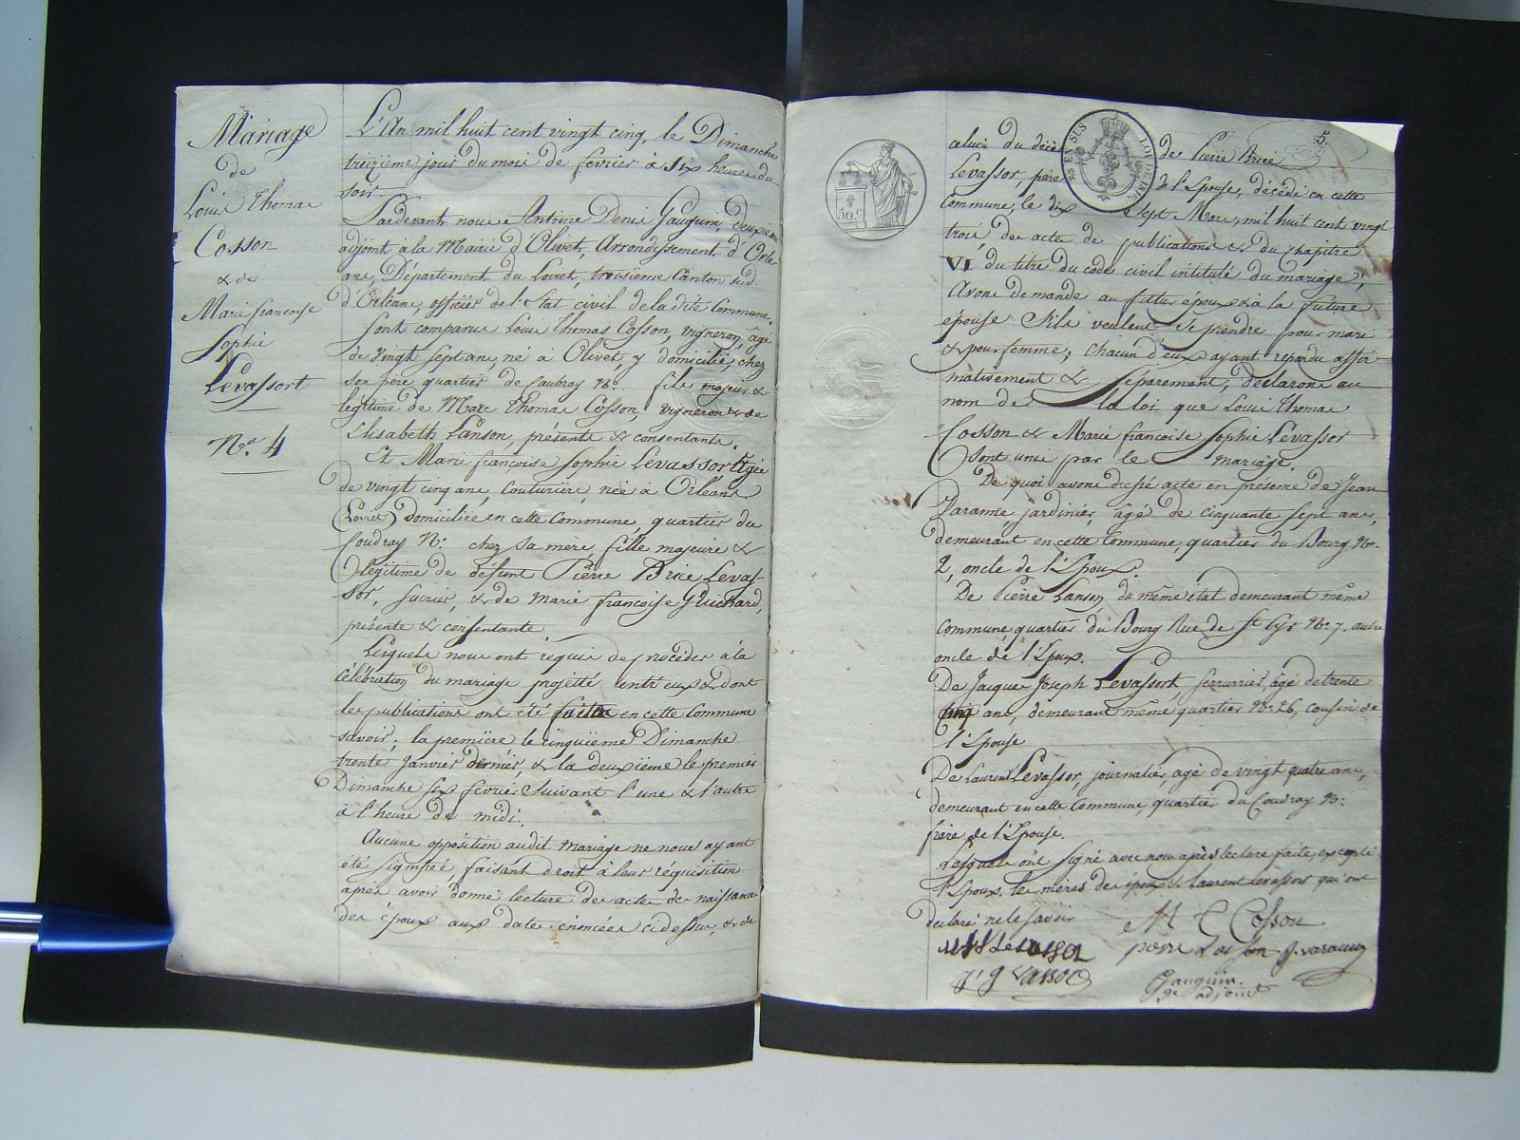 Mariage
de
Louis Thomas
Cosson
& de
Marie françoise
Sophie
Levassort
N.º 4
L'An mil huit cent vingt cinq, le Dimanche
treizième jour du mois de fevrier à six heures du
soir
Pardevant nous Antoine Denis Gauguin, deuxième
adjoint a la Mairie d'Olivet, Arrondissement d'Orlé
ans, Département du Loiret, troisieme Canton sud
d'Orléans, officier de l'état civil de la dite Commune.
Sont comparus Louis Thomas Cosson, vigneron, âgé
de vingt sept ans né à Olivet, y domicilié, chez
son père quartier de Caubray N.º fils majeur &
légitime de Marc Thomas Cosson, vigneron & de
Elisabeth Lanson, présents & consentants.
Et Marie françoise Sophie Levassort Agée
de vingt cinq ans, Couturière, née à Orléans
(Loiret) Domiciliée en cette Commune, quartier du
Coudray N.º chez sa mère, fille majeure &
légitime de défunt Pierre Brice Levas-
sor, & de Marie françoise Guichard,
présente & consentante.
Lesquels nous ont requis de procéder à la
Célébration du mariage projetté entr'eux & dont
les publications ont été faites en cette Commune
savoir, la première le cinquième Dimanche
trente Janvier dernier, & la deuxième le premier
Dimanche six fevrier suivant l'une & l'autre
à l'heure de midi.
Aucune opposition audit mariage ne nous ayant
été signifiée, faisant droit à leur réquisition
après avoir donné lecture des actes de naissance
des époux aux dates énoncées cidessus, & de
5.
celui du décès de Pierre Brice
Levassor, père de l'Epouse, décédé en cette
Commune, le dix sept Mars, mil huit cent vingt
trois, des actes de publications & du chapitre
VI du titre du code civil intitulé du mariage,
Avons demandé au futur époux & à la future
épouse s'ils veulent se prendre pour mari
& pour femme; chacun d'eux ayant repondu affir-
mativement & séparement, déclarons au
nom de la loi que Louis Thomas
Cosson & Marie françoise Sophie Levassor
sont unis par le mariage.
De quoi avons dressé acte en présence de Jean
Varanne, jardinier, âgé de cinquante sept ans,
demeurant en cette Commune, quartier du Bourg N.º
2, oncle de l'Epoux.
De Pierre Lanson de même état demeurant même
Commune, quartier du Bourg Rue de St Cyr N.º 7. autre
oncle de l'Epoux.
De Jacques Joseph Levassort, serrurier, âgé de trente
cinq ans, demeurant même quartier N.º 26, cousin de
l'Epouse
De Laurent Levassor, journalier, agé de vingt quatre ans,
demeurant en cette Commune, quartier du Coudray N.º
frère de l'Epouse.
Lesquels ont signé avec nous après lecture faite, excepté
l'Epoux. les mères des époux & Laurent Levassor qui ont
déclaré ne le savoir
M T Cosson
pierre Lanson J. varanne
Gauguin.
adjoint
50 c